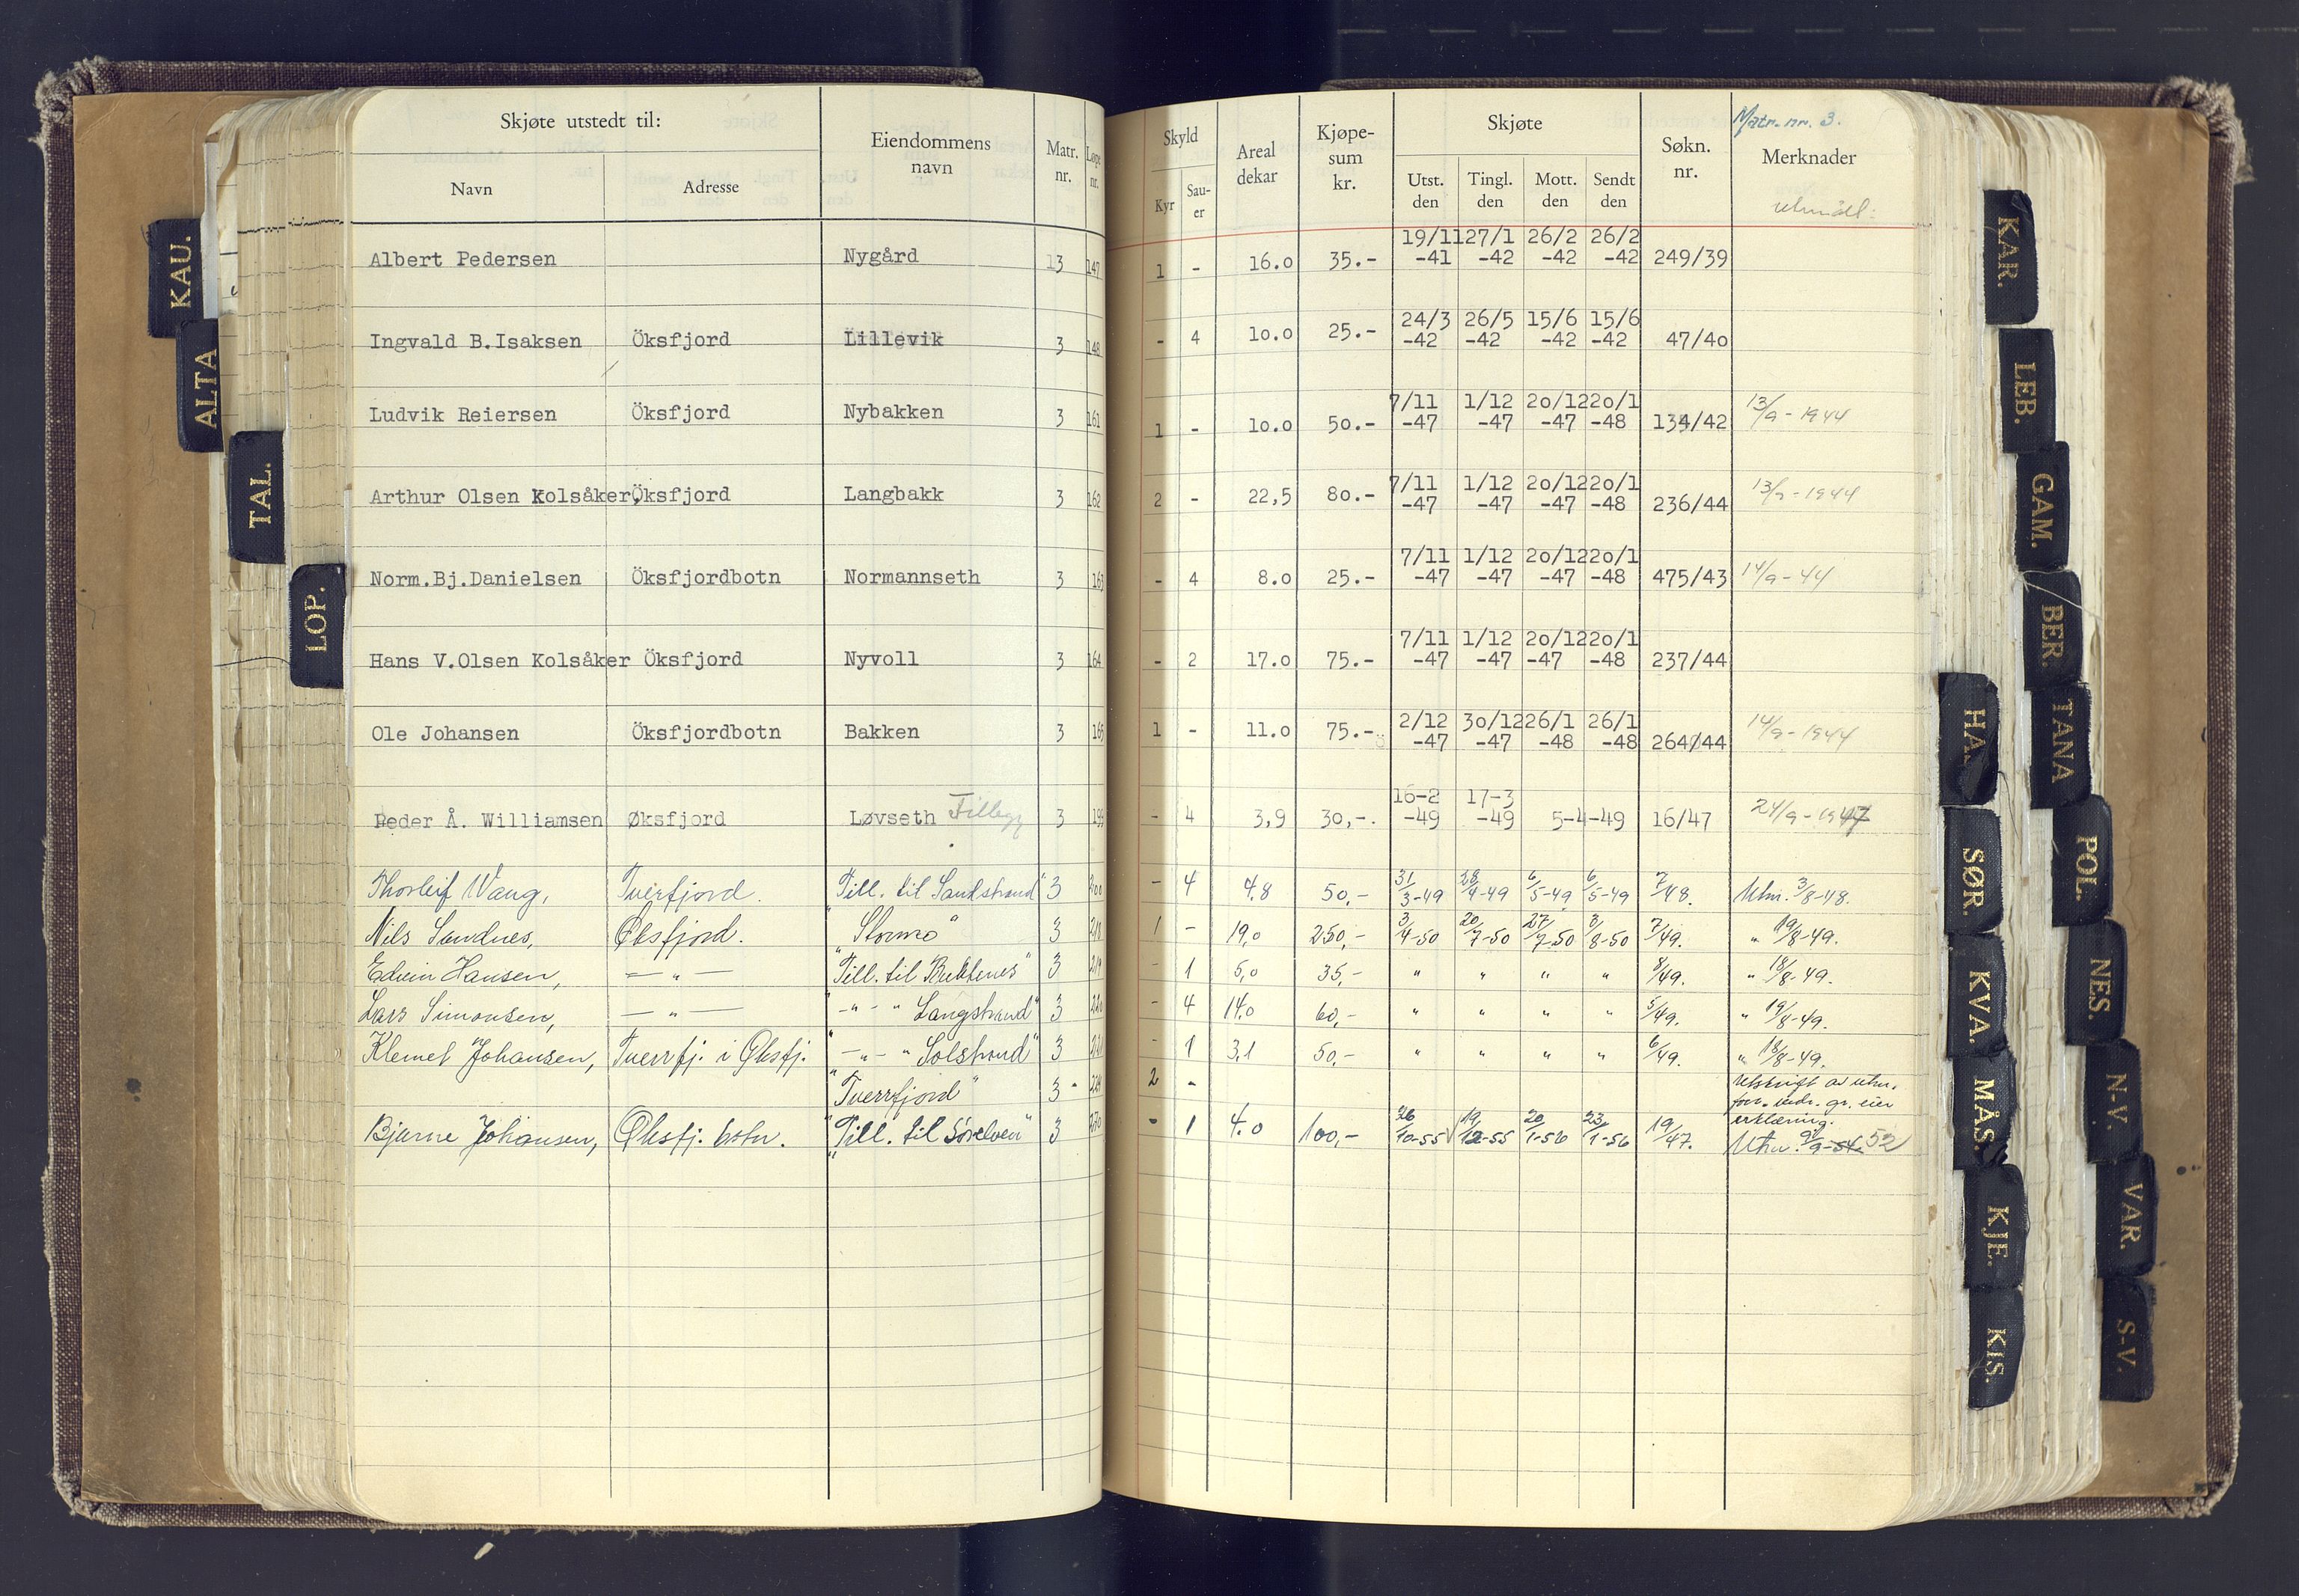 Skjøte utstedt til:
Navn
Adresse
Eiendommens navn
Matr. nr.
Løpe nr.
Matr. nr. 3.
Skyld
Kyr
Sau-er
Areal dekar
Kjøpe-sum kr.
Skjøte
Utst. den
Tingl. den
Mott. den
Sendt den
Søkn. nr.
Merknader
utmål:
Albert Pedersen Nygård 13 147 1 - 16.0 35.- 19/11-41 27/1-42 26/2-42 26/2-42 249/39
Ingvald B.Isaksen Öksfjord Lillevik 3 148 - 4 10.0 25.- 24/3-42 26/5-42 15/6-42 15/6-42 47/40
Ludvik Reiersen Öksfjord Nybakken 3 161 1 - 10.0 50.- 7/11-47 1/12-47 20/12-47 20/1-48 134/42 13/9-1944
Arthur Olsen Kolsåker, Öksfjord Langbakk 3 162 2 - 22,5 80.- 7/11-47 1/12-47 20/12-47 20/1-48 236/44 13/9-1944
Norm.Bj.Danielsen Öksfjordbotn Normannseth 3 163 - 4 8.0 25.- 7/11-47 1/12-47 20/12-47 20/1-48 475/43 14/9-44
Hans V.Olsen Kolsåker Öksfjord Nyvoll 3 164 - 2 17.0 75.- 7/11-47 1/12-47 20/12-47 20/1-48 237/44
Ole Johansen Öksfjordbotn Bakken 3 165 1 - 11.0 75.- 2/12-47 30/12-47 26/1-48 26/1-48 264/44 14/9-1944
Peder Å. Williamsen Øksfjord Løvseth Tillegg 3 199 - 4 3,9 30,-. 16-2-49 17-3-49 5-4-49 16/47 24/9-1947
Thorleif Wang, Tverfjord. "Till. til Sandstrand" 3 200 - 4 4.8 50,- 31/3-49 28/4-49 6/5-49 6/5-49 7/48. Utm. 3/8-48.
Nils Sandnes, Øksfjord. "Stormo" 3 218 1 - 19,0 250,- 3/4-50 20/7-50 27/7-50 3/8-50 7/49. " 19/8-49.
Edvin Hansen, — " — "Till. til Bukkenes" 3 219 - 1 5,0 35,- " " " " 8/49. " 18/8-49.
Lars Simonsen, — " — " -"- " Langstrand" 3 220 - 4 14,0 60,- " " " " 5/49. " 19/8-49.
Klemet Johansen, Tverrfj. i Øksfj. " -"- " Solstrand" 3 221 - 1 3,1 50,- " " " " 6/49. " 18/8-49.
"Tverrfjord" 3 - 2 - Utskrift av utm. forr. gr. eier erklæring.
Bjarne Johansen, Øksfj. botn. "Till. til Sørelven" 3 270 - 1 4.0 100,- 26/10-55 19/12-55 20/1-56 23/1-56 19/47. Utm. 9/9-54 52
KAU.
ALTA
TAL.
LOP.
KAR.
LEB.
GAM.
BER.
TANA
POL.
NES.
N-V.
VAR.
S-V.
HA
SØR.
KVA.
MÅS.
KJE.
KIS.